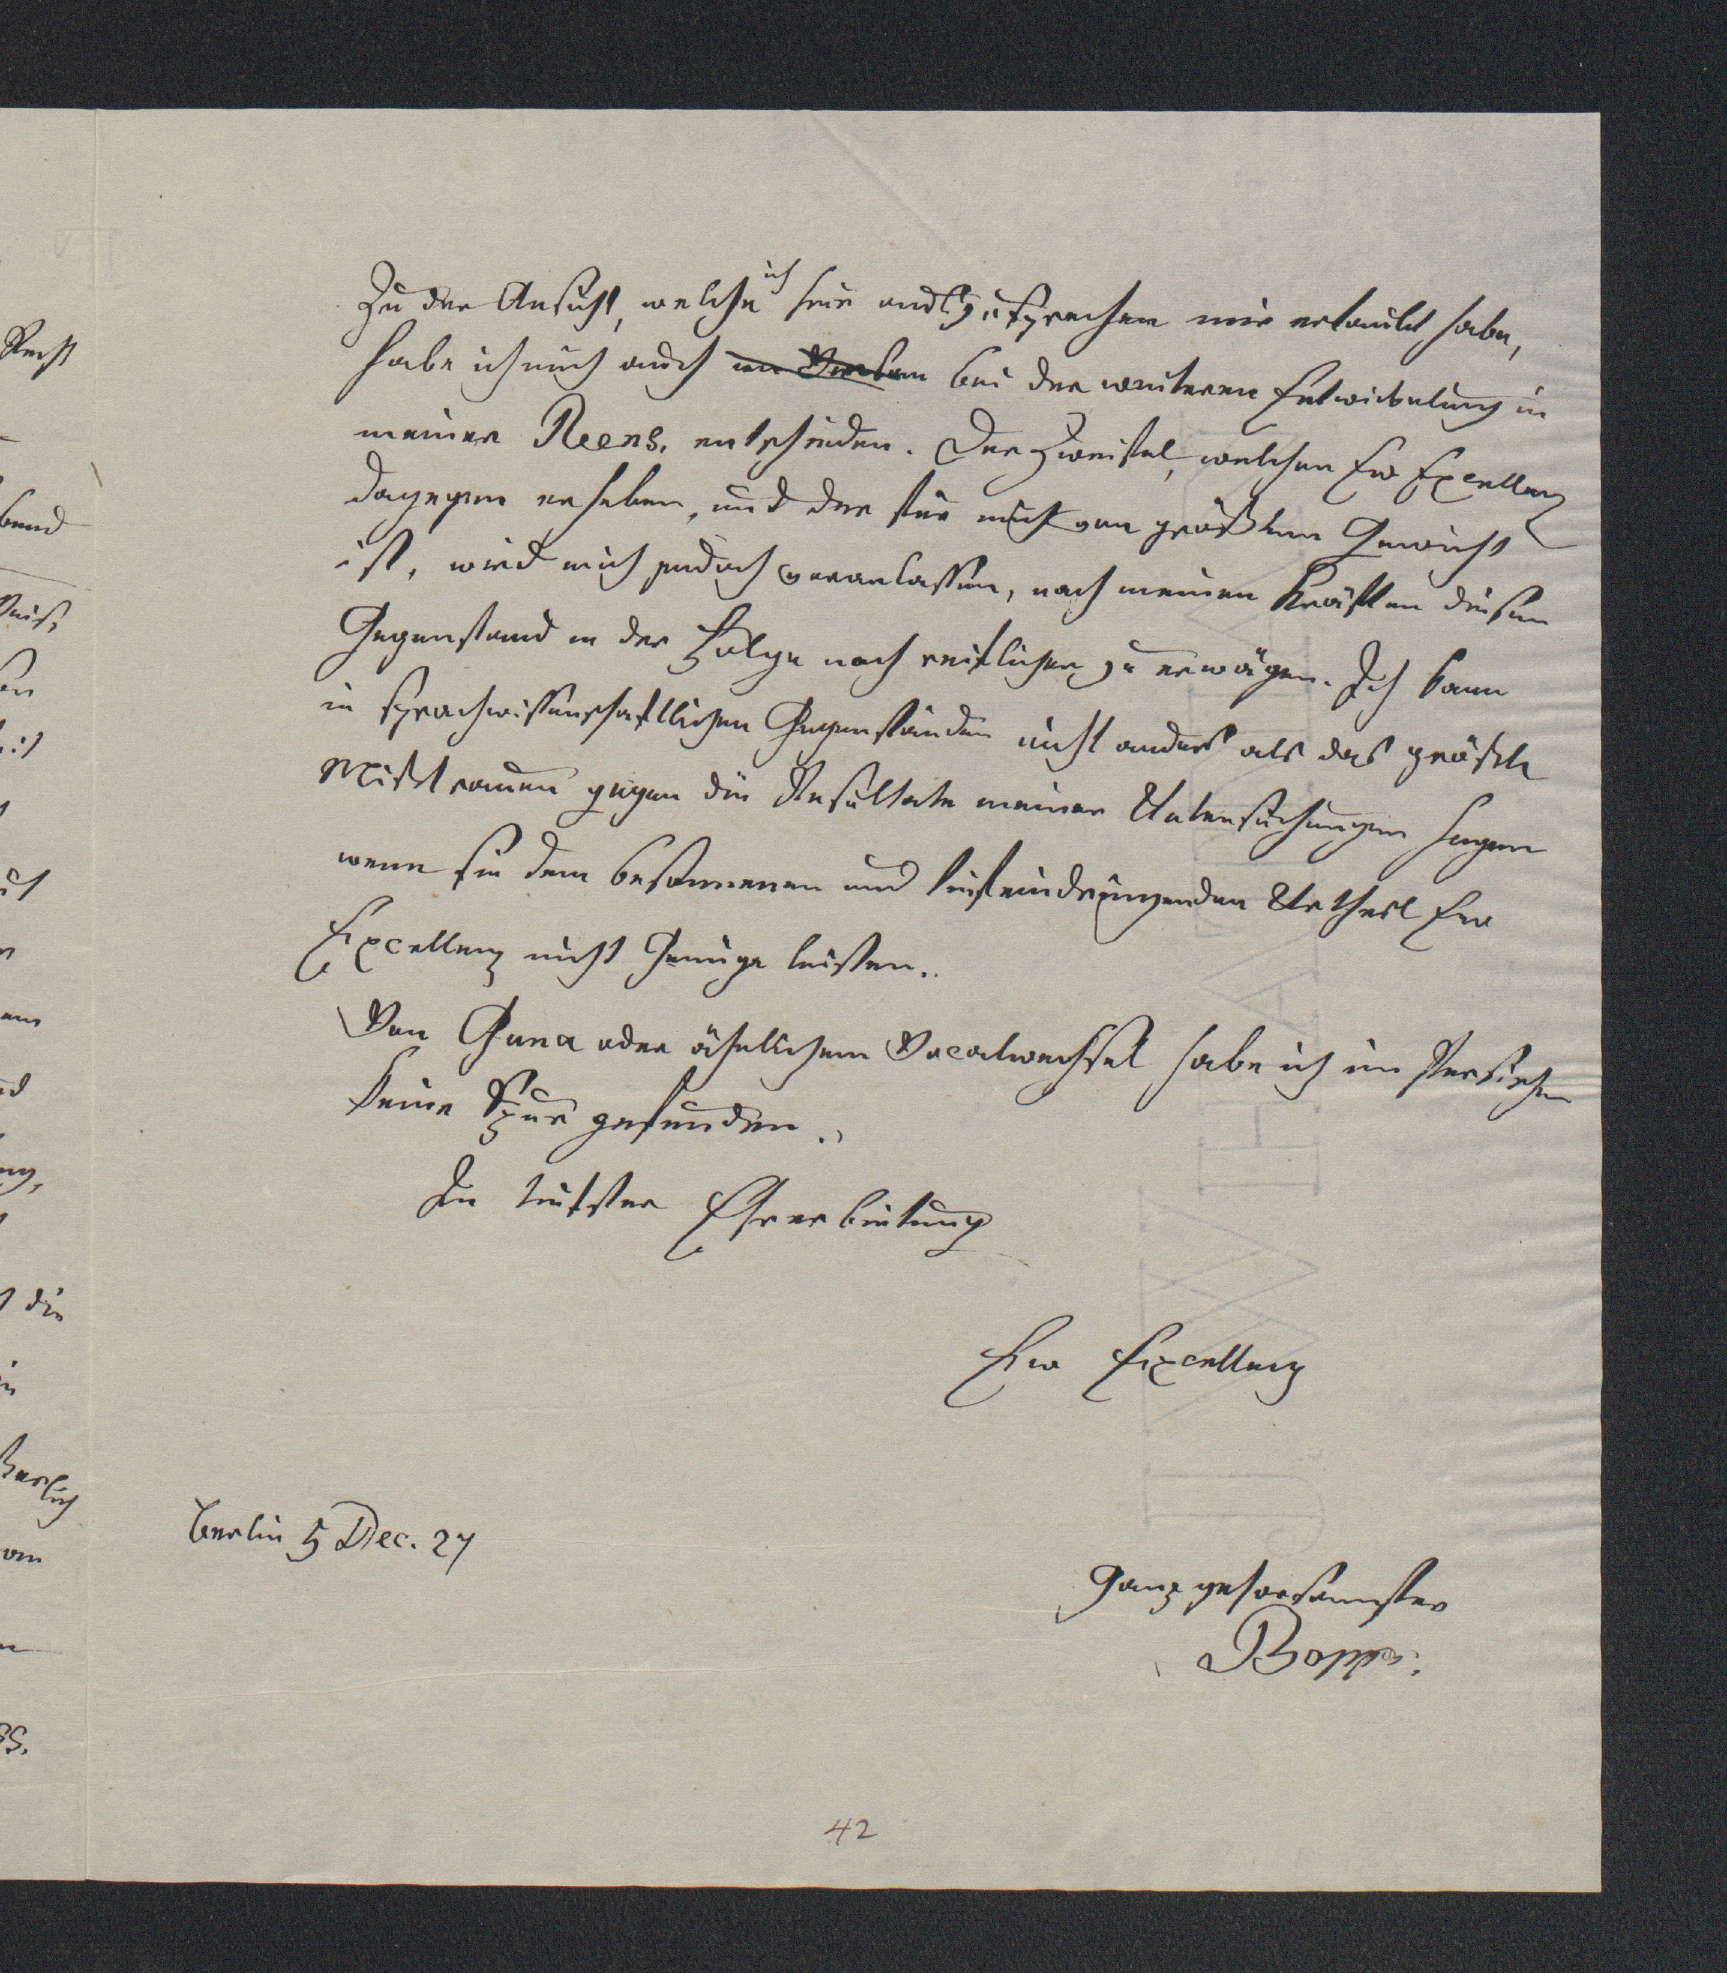 Zu der Ansicht, welche ich hier auszusprechen mir erlaubt habe,
habe ich mich auch im Verlau bei der weiteren Entwickelung in
meiner Recens. entschieden. Der Zweifel, welchen Ew Excellenz
dagegen erheben, und der für mich von größtem Gewicht
ist, wird mich jedoch veranlassen, nach meinen Kräften diesen
Gegenstand in der Folge noch reiflicher zu erwägen. Ich kann
in sprachwissenschaftlichen Gegenständen nicht anders als das größte
Mißtrauen gegen die Resultate meiner Untersuchungen hegen
wenn sie dem besonnenen und tiefeindringenden Urtheil Ew
Excellenz nicht Genüge leisten.
Von Guna oder ähnlichem Vocalwechsel habe ich im Persischen
keine Spur gefunden.
In tiefster Ehrerbietung
Ew Excellenz
Berlin 5 Dec. 27
ganz gehorsamster
Bopp.
42